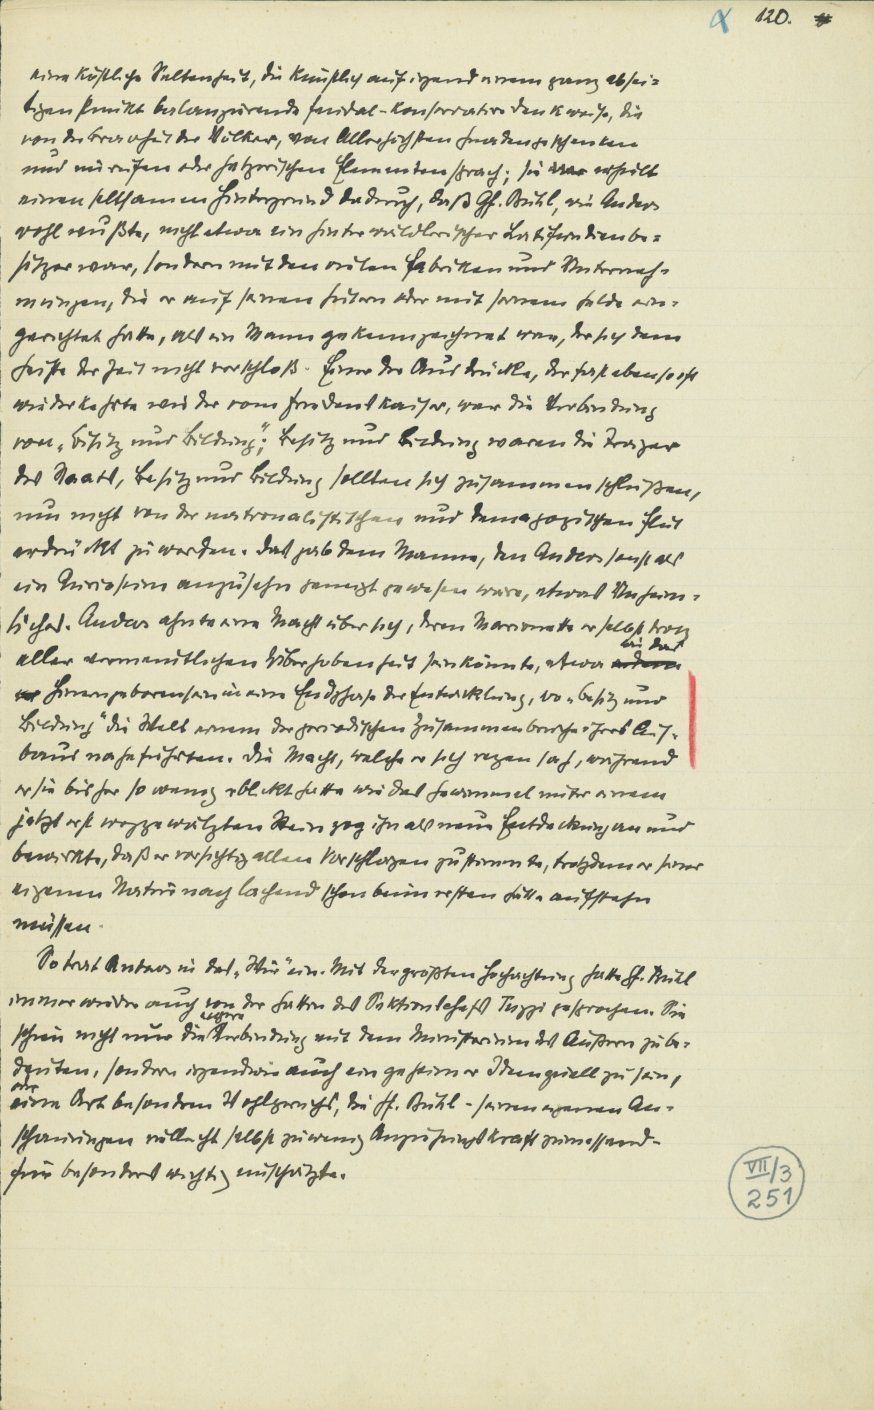 α 120.
eine köstliche Seltenheit, die künstlich auf irgend einem ganz absei-
tigen Punkt balanzierende feudal-konservative Denkweise, die
von der Bravheit der Völker, von Allerhöchsten Gnadengeschenken
und unreifen oder hetzerischen Elementen sprach; sie erhielt
einen seltsamen Hintergrund dadurch, daß Gf. Bühl, wie Anders
wohl wußte, nicht etwa ein hinterwäldlerischer Latifundienbe-
sitzer war, sondern mit den vielen Fabriken und Unterneh-
mungen, die er auf seinen Gütern oder mit seinem Gelde ein-
gerichtet hatte, als ein Mann gekennzeichnet war, der sich dem
Geiste der Zeit nicht verschloß. Einer der Ausdrücke, der fast ebenso oft
wiederkehrte wie der vom Friedenskaiser, war die Verbindung
von „Besitz und Bildung"; Besitz und Bildung waren die Träger
des Staats, Besitz und Bildung sollten sich zusammenschließen,
um nicht von der nationalistischen und demagogischen Flut
erdrückt zu werden. Das gab dem Manne, den Anders sonst als
ein Kuriosum anzusehn geneigt gewesen wäre, etwas Unheim-
liches. Anders ahnte eine Macht über sich, deren Marionette er selbst trotz
aller vermeintlichen Überhobenheit sein könnte, etwa
in das
Hineingeborensein in eine Endphase der Entwicklung, wo „Besitz und
Bildung" die Welt einem der periodischen Zusammenbrüche ihres Auf-
baus nahe führten. Die Macht, welche er sich regen sah, während
er sie bisher so wenig erblickt hatte wie das Gewimmel unter einem
jetzt erst weggewälzten Stein zog ihn als neue Entdeckung an und
bewirkte, daß er vorsichtig allen Vorschlägen zustimmte, trotzdem er seiner
eigenen Natur nach lachend schon beim ersten hätte aufstehn
müssen.
So trat Anders in das „Wir" ein. Mit der größten Hochachtung hatte Gf. Bühl
immer wieder auch von der Gattin des Sektionschefs Tuzzi gesprochen. Sie
schien nicht nur die Verbindung mit dem Ministerium des Äußern zu be-
deuten, sondern irgendwie auch ein geheimer Ideenquell zu sein,
oder
eine Art besonderen Wohlgeruchs, die Gf. Bühl - seinen eigenen An-
schauungen vielleicht selbst zu wenig Anziehungskraft zumessend -
für besonders wichtig einschätzte.
VII/3
251